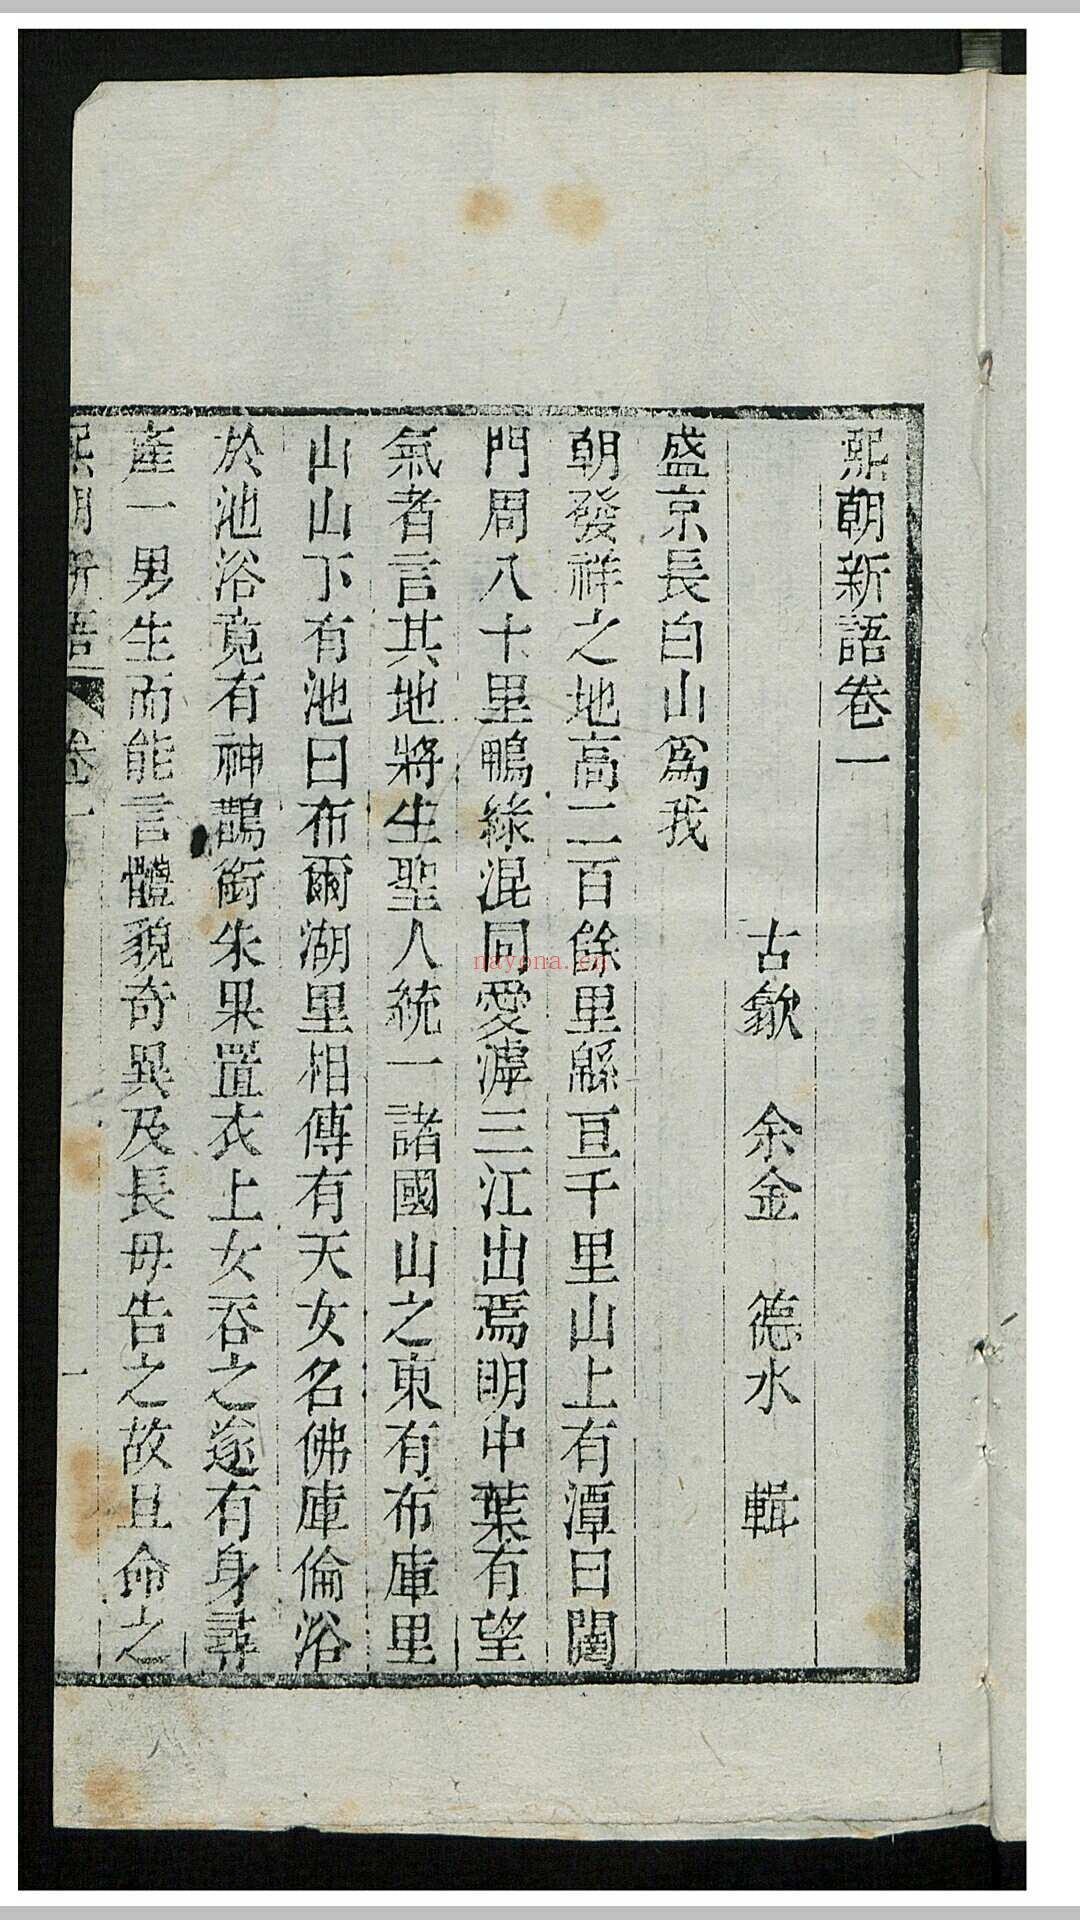 熙朝新語卷一
古歙 余金 德水 輯
盛京長白山爲我
朝發祥之地高二百餘里緜亘千里山上有潭曰闥
門周八十里鴨綠混同愛滹三江出焉明中葉有望
氣者言其地將生聖人統一諸國山之東有布庫里
山山下有池曰布爾湖里相傳有天女名佛庫倫浴
於池浴竟有神鵲銜朱果置衣上女吞之遂有身尋
產一男生而能言體貌奇異及長母告之故且命之
熙朝新語 卷一 一
nayona.cn